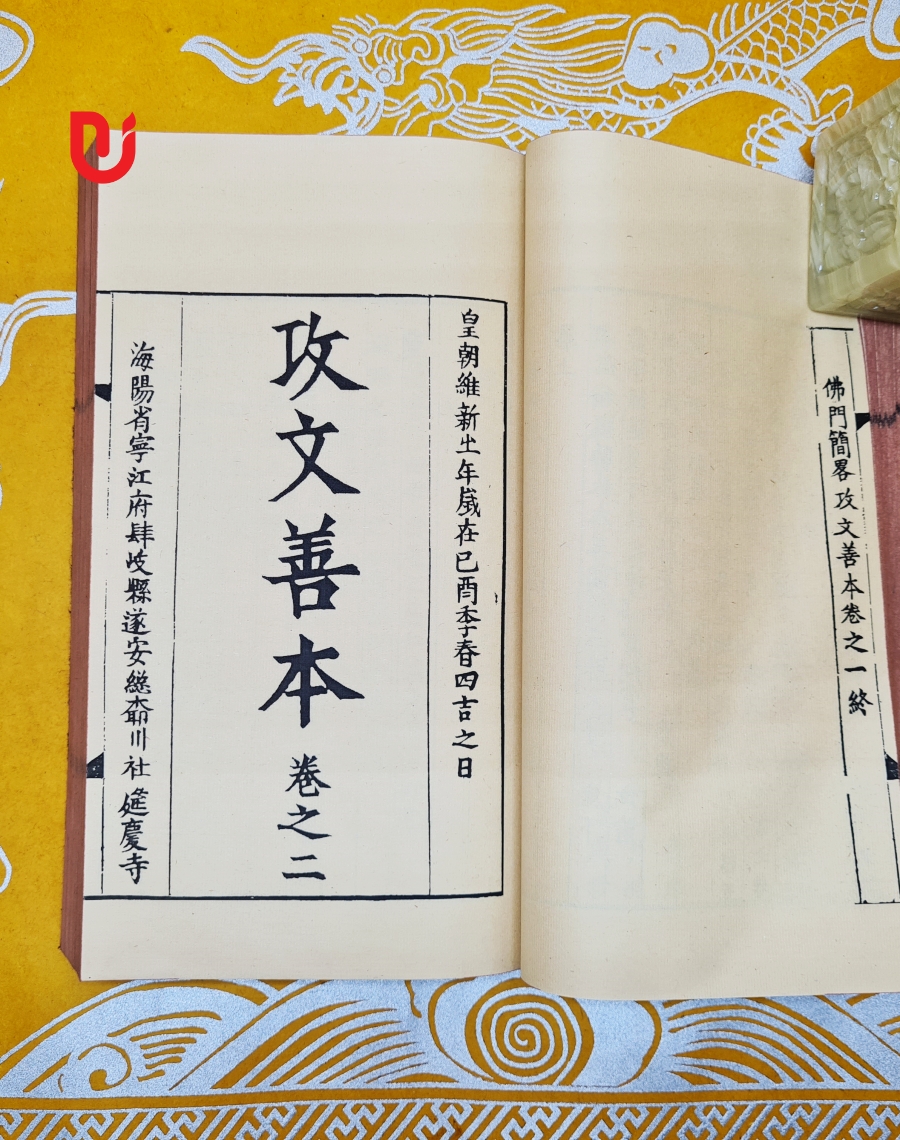 佛門簡畧攻文善本卷之一終
皇朝維新㞢年嵗在己酉季春四吉之日
攻文善本 卷之二
海陽省寧江府肆岐縣遂安總川社延慶寺